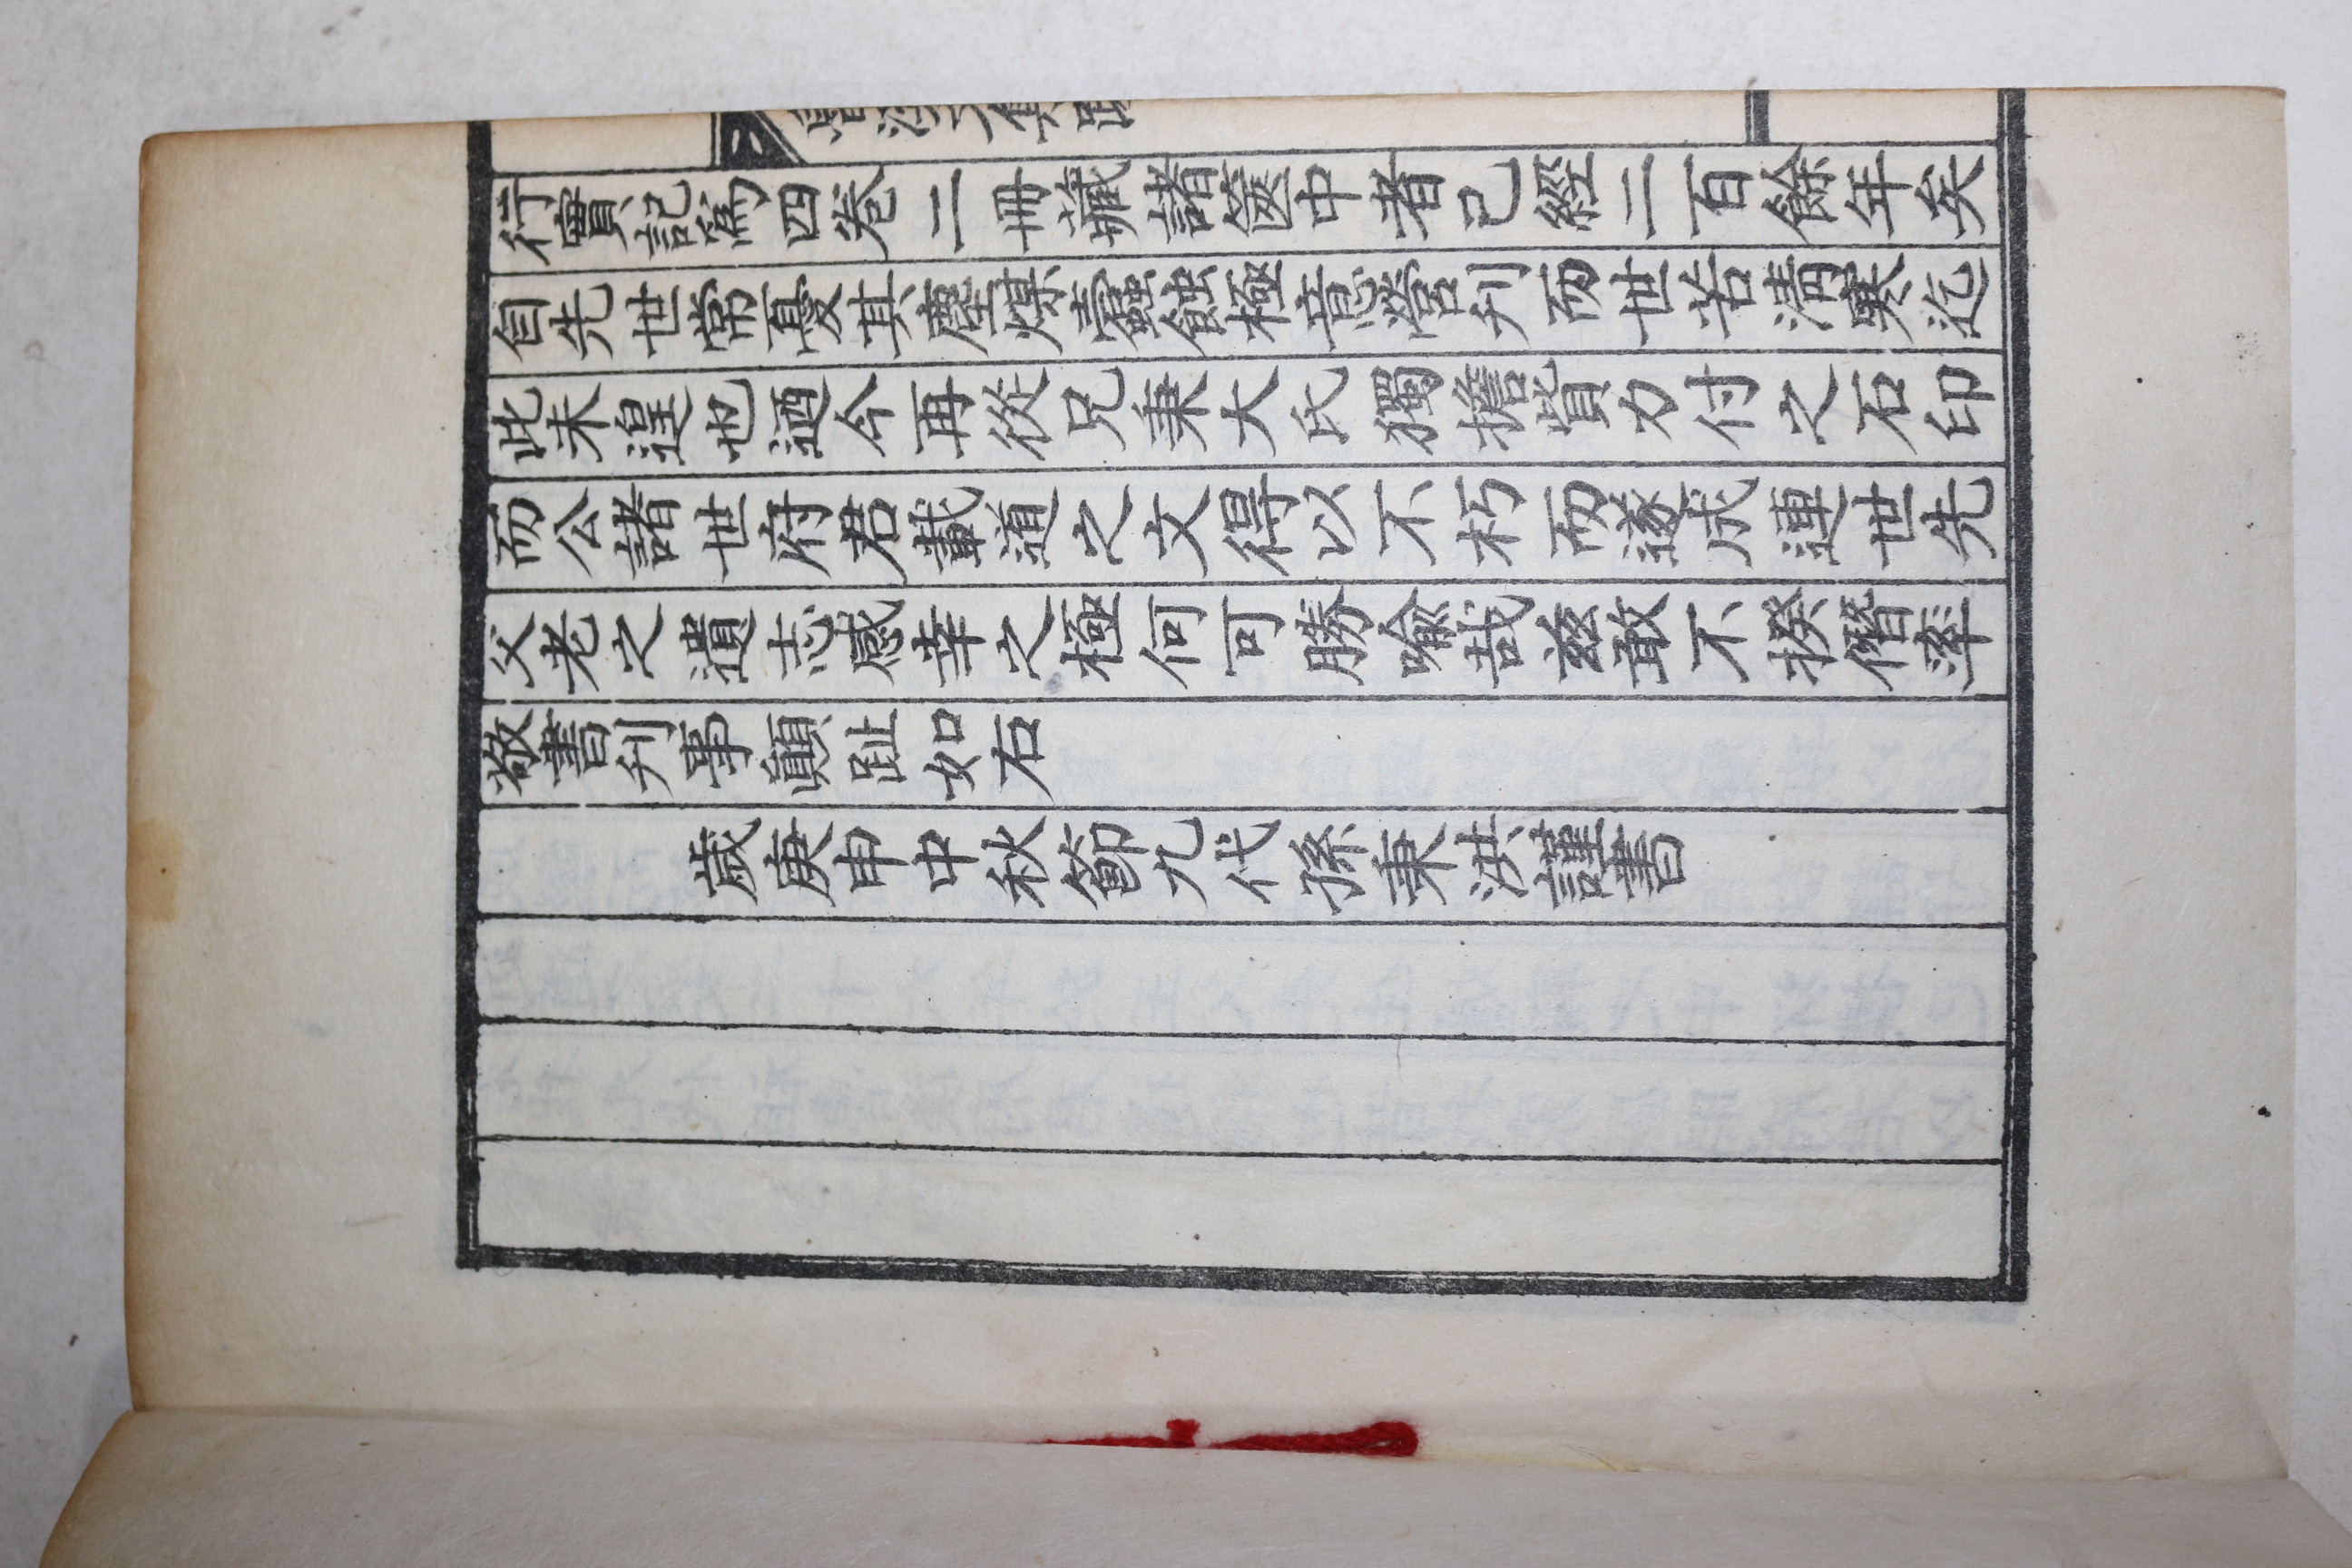 行實記爲四卷二冊藏諸篋中者已經二百餘年矣
自先世常憂其塵煤蠹蝕極意營刋而世苦淸寒迄
此未遑也迺今再從兄秉大氏獨擔貲力付之石印
而公諸世府君載道之文得以不朽而遂成連世先
父老之遺志感幸之極何可勝喩哉玆敢不揆僭率
敬書刋事顚趾如右
歲庚申中秋節九代孫秉洪謹書